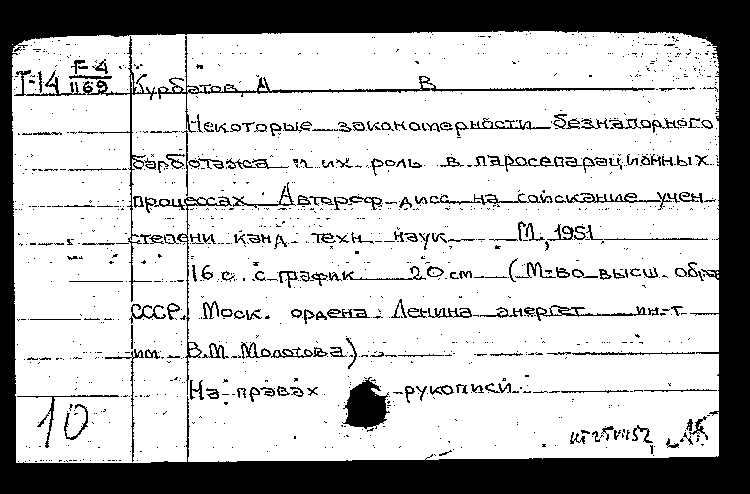 Т-14 Г-4/1169 Курбатов, А В
Некоторые закономерности безнапорного
барботажа и их роль в паросепарационных
процессах. Автореф. дисс. на соискание учен.
степени канд. техн. наук. М., 1951.
16 с. с график. 20 см (М-во высш. обра
СССР. Моск. ордена Ленина энергет. ин-т
им. В.М. Молотова).
На правах рукописи.
10